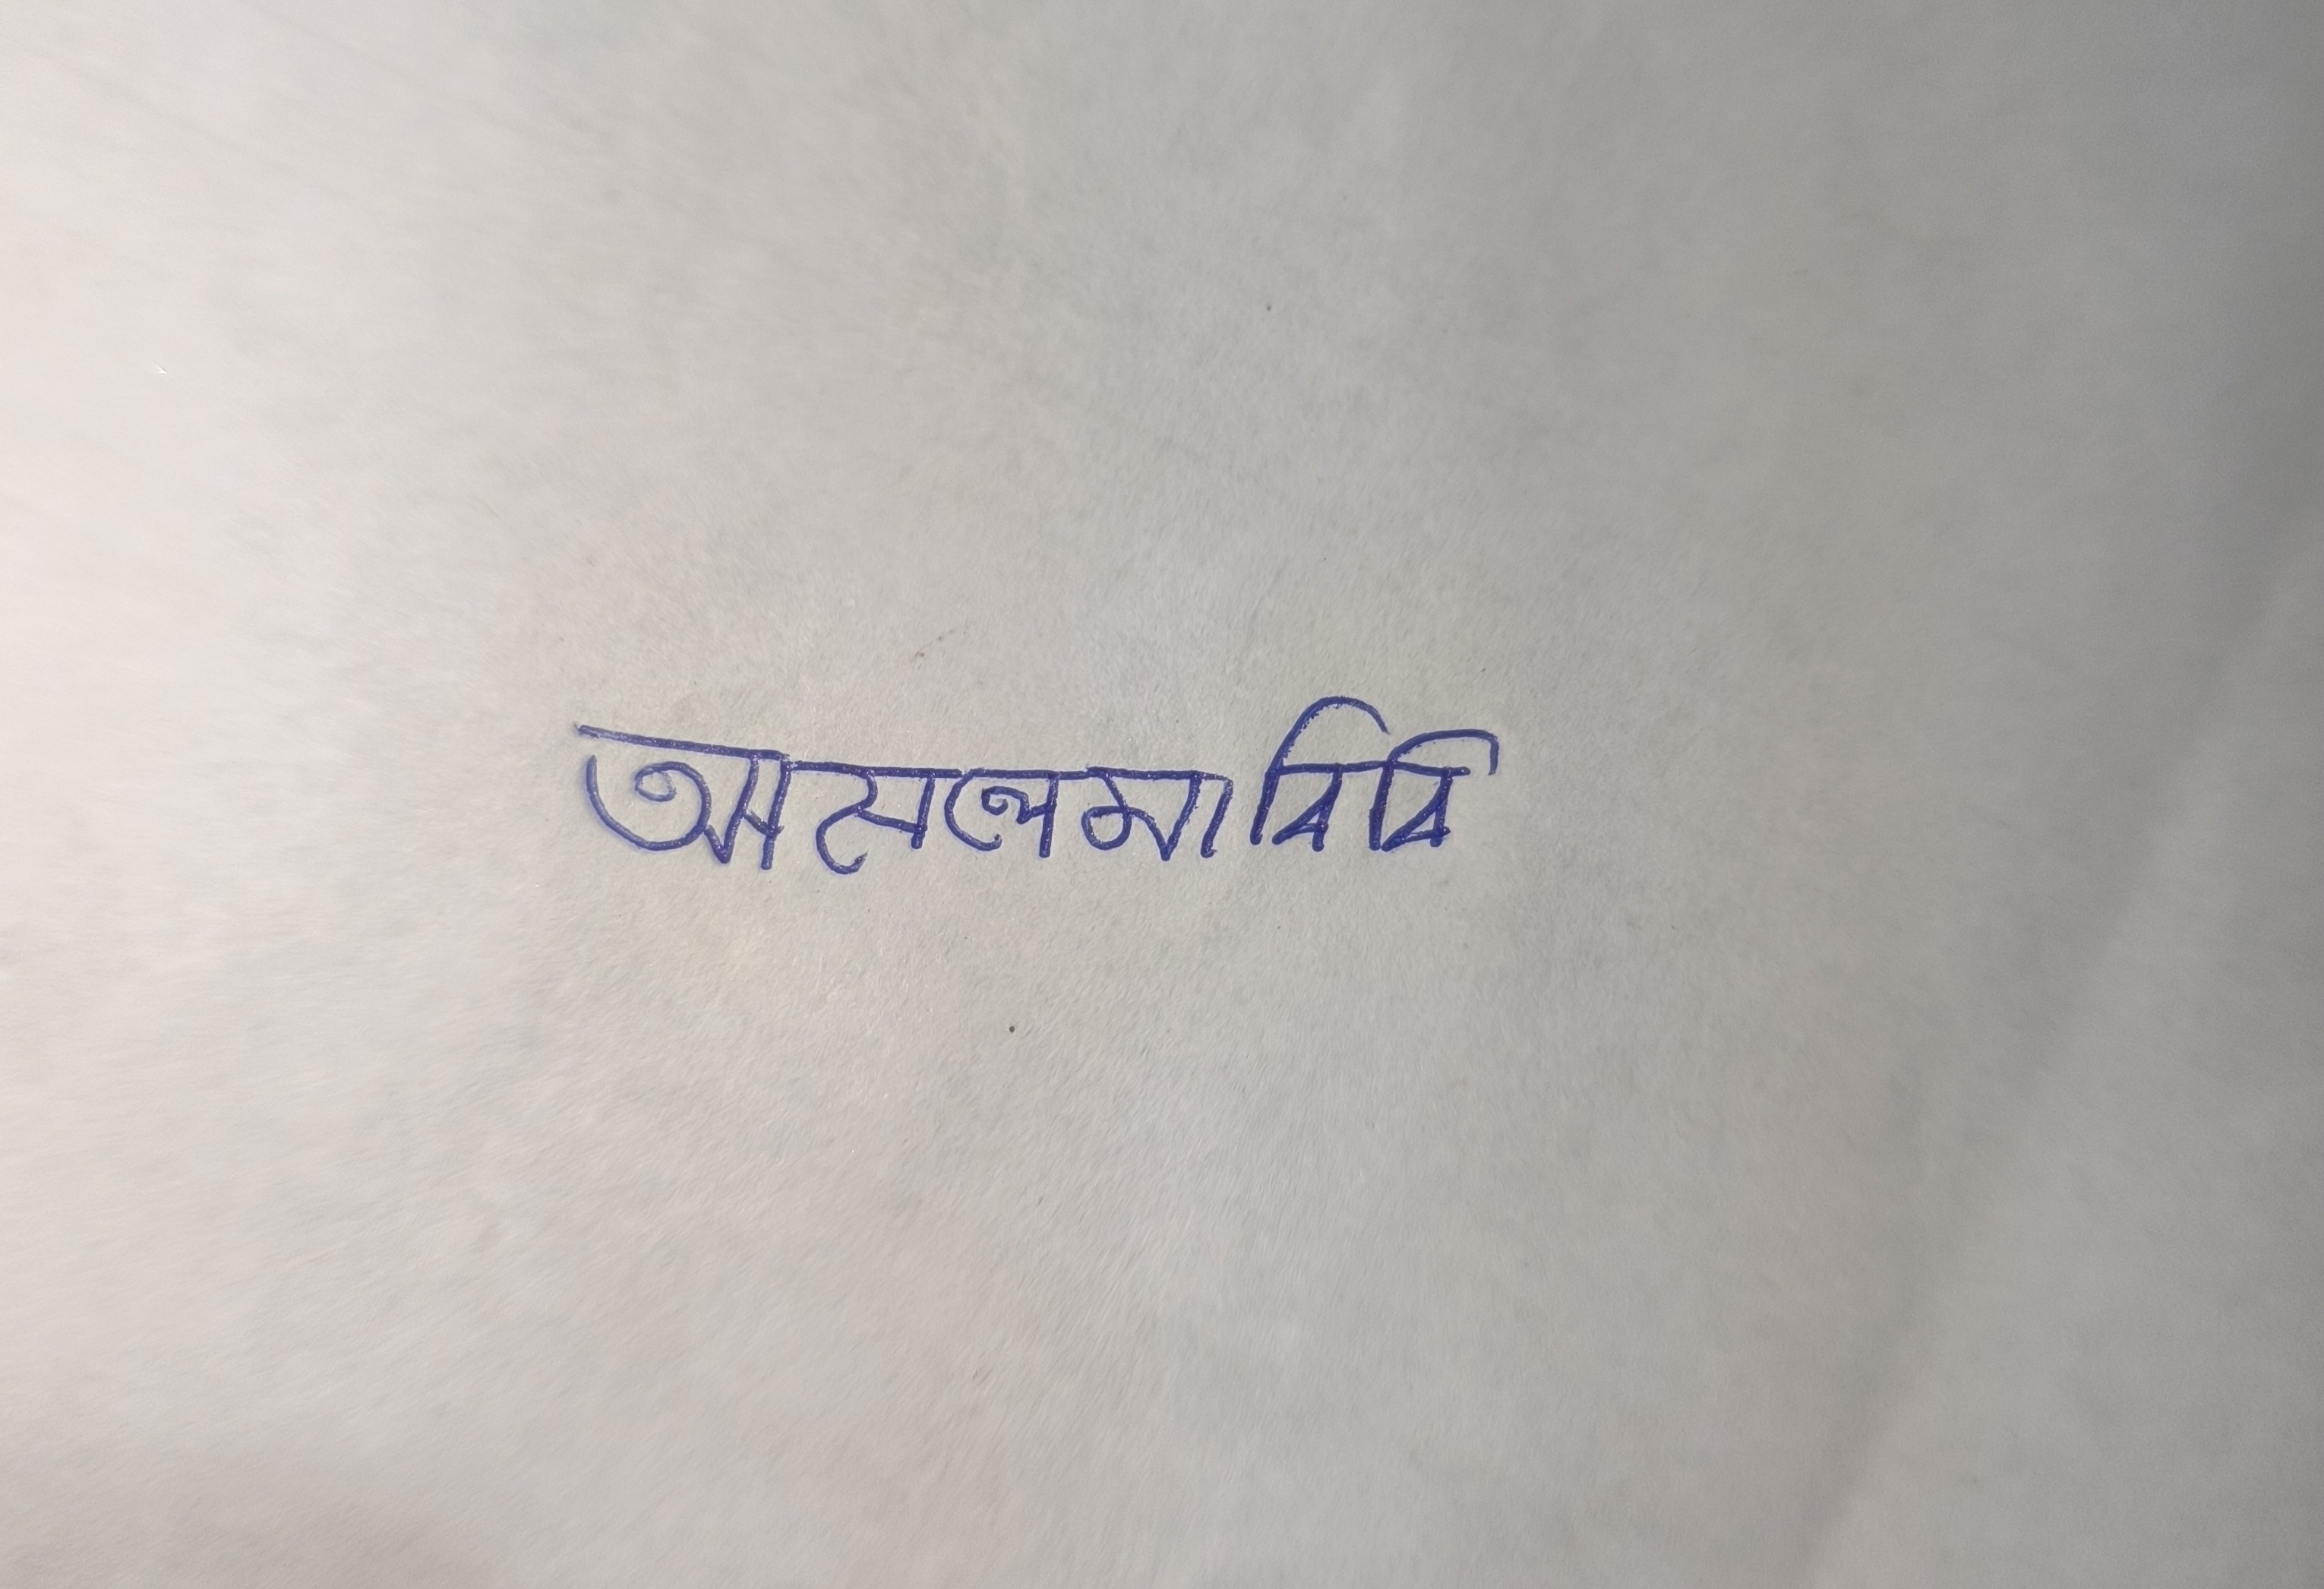 আসলমা বিবি